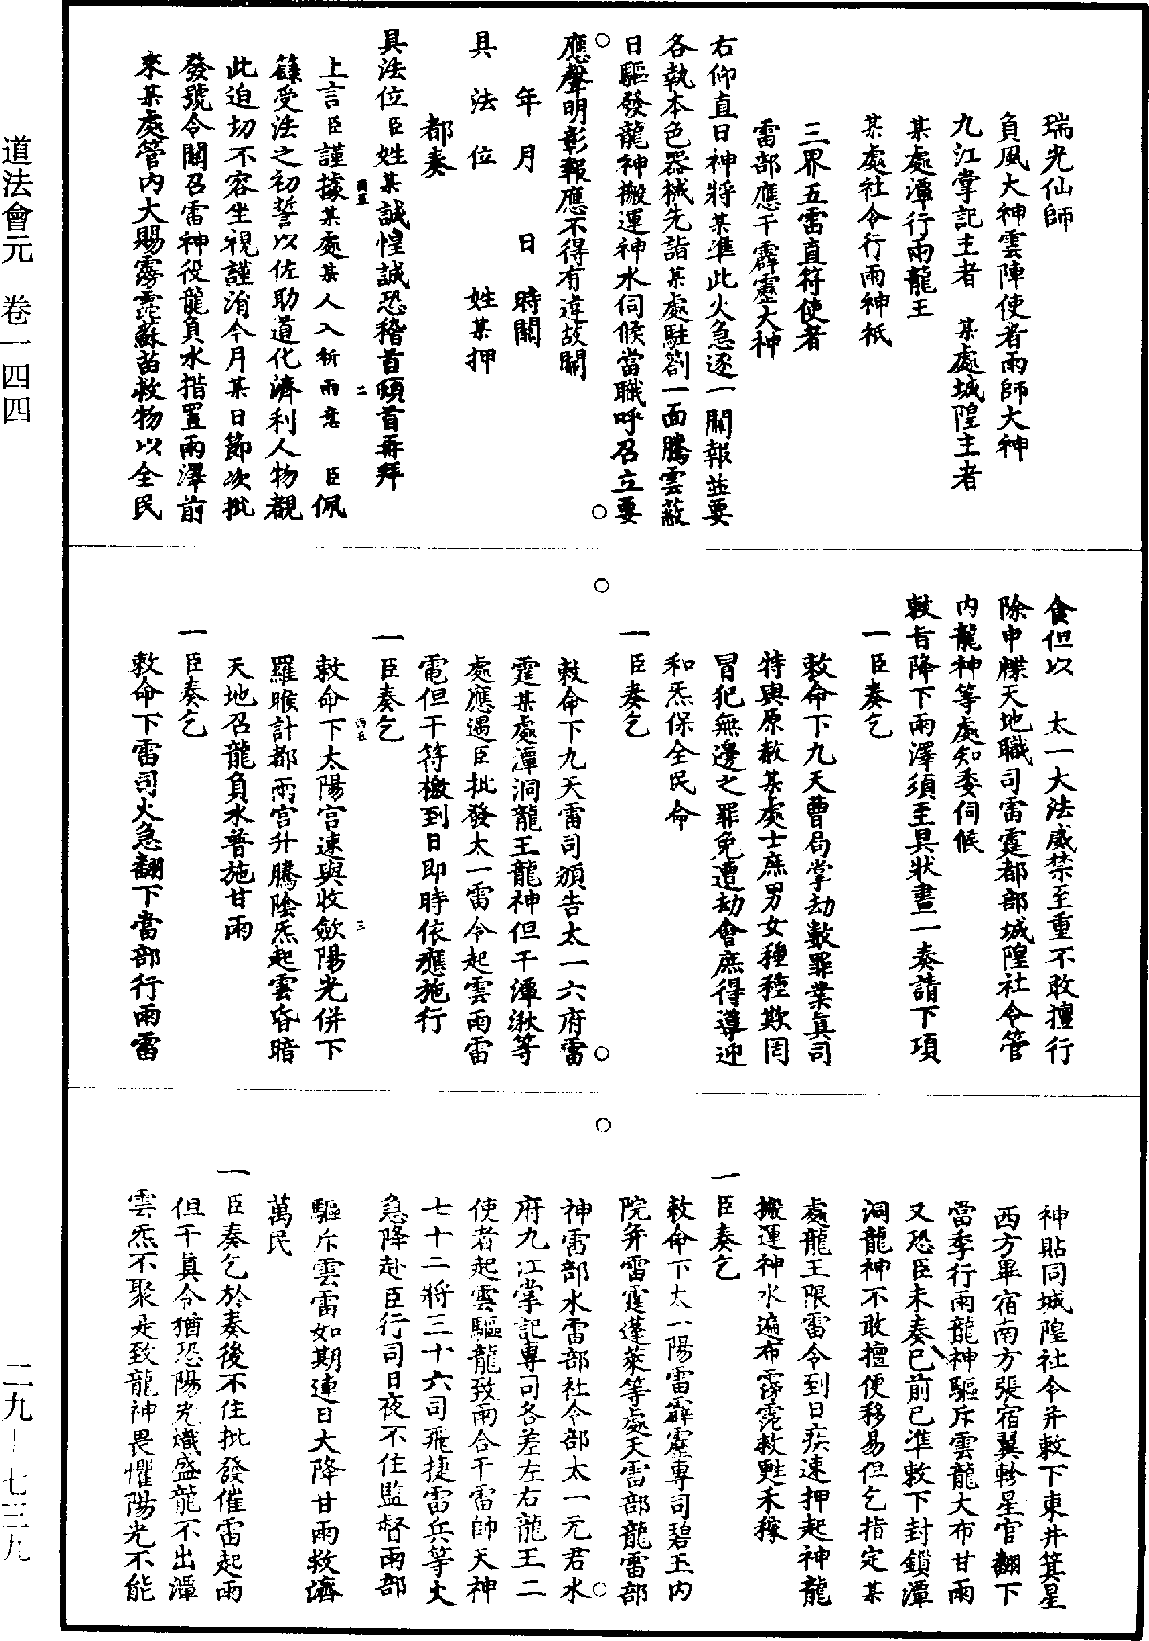 瑞光仙師
負風大神雲陣使者雨師大神
九江掌記主者　某處城隍主者
某處潭行雨龍王
某處社令行雨神祇
三界五雷直符使者
雷部應干霹靂大神
右仰直日神將某準此火急逐一關報並要
各執本色器械先詣某處駐劄一面騰雲蔽
日驅發龍神搬運神水伺候當職呼召立要
應聲明彰報應不得有違故關
年　月　　日　時關
具　法　位　　　　姓某押
都奏
具法位臣姓某誠惶誠恐稽首頓首再拜
上言臣謹據某處某人入祈雨意　臣佩
籙受法之初誓以佐助道化濟利人物覩
此迫切不容坐視謹涓今月某日節次批
發號令關召雷神役龍負水措置雨澤前
來某處管內大賜霶霈蘇苗救物以全民
食但以　太一大法威禁至重不敢擅行
除申牒天地職司雷霆都部城隍社令管
內龍神等處知委伺候
敕旨降下雨澤須至具狀畫一奏請下項
一臣奏乞
敕命下九天曹局掌劫數罪業真司
特與原赦某處士庶男女種種欺罔
冒犯無邊之罪免遭劫會庶得導迎
和炁保全民命
一臣奏乞
敕命下九天雷司頒告太一六府雷
霆某處潭洞龍王龍神但干潭湫等
處應遇臣批發太一雷令起雲雨雷
電但干符檄到日即時依應施行
一臣奏乞
敕命下太陽宮速與收斂陽光併下
羅睺計都兩宮升騰陰炁起雲昏暗
天地召龍負水普施甘雨
一臣奏乞
敕命下雷司火急翻下當部行雨雷
神貼同城隍社令并敕下東井箕星
西方畢宿南方張宿翼軫星官翻下
當季行雨龍神驅斥雲龍大布甘雨
又恐臣未奏已前已準敕下封鎖潭
洞龍神不敢擅便移易但乞指定某
處龍王限雷令到日疾速押起神龍
搬運神水遍布霶霈救甦禾稼
一臣奏乞
敕命下太一陽雷霹靂專司碧玉內
院并雷霆蓬萊等處天雷部龍雷部
神雷部水雷部社令部太一元君水
府九江掌記專司各差左右龍王二
使者起雲驅龍致雨合干雷帥天神
七十二將三十六司飛捷雷兵等火
急降赴臣行司日夜不住監督雨部
驅斥雲雷如期連日大降甘雨救濟
萬民
一臣奏乞於奏後不住批發催雷起雨
但干真令猶恐陽光熾盛龍不出潭
雲炁不聚是致龍神畏懼陽光不能
道法會元　卷一四四
二九－七三九